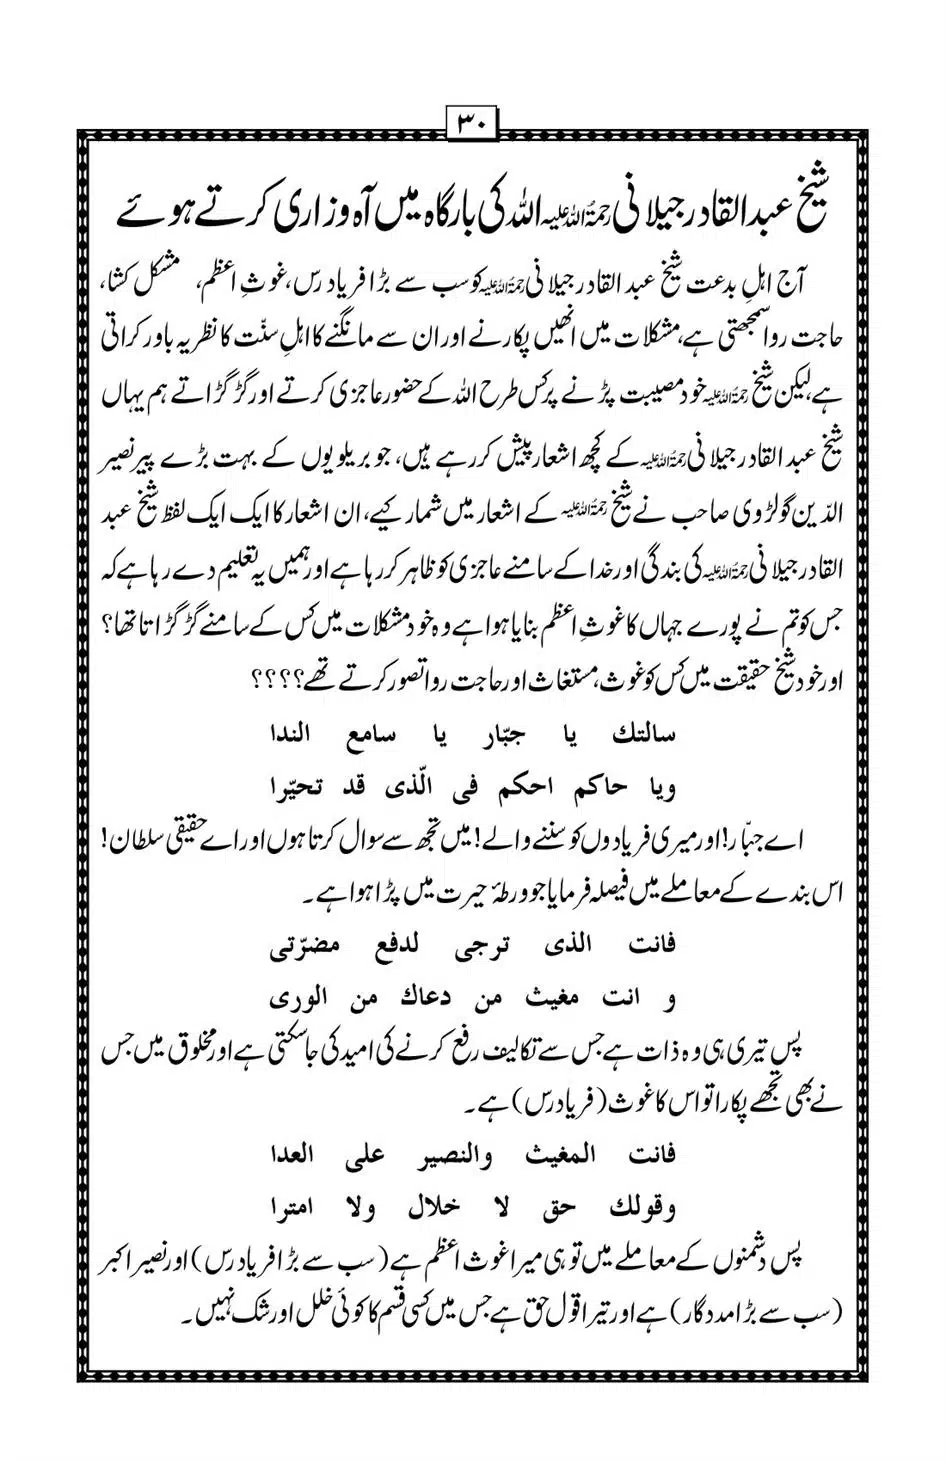 ۳۰
شیخ عبدالقادر جیلانی رحمۃ اللہ علیہ اللہ کی بارگاہ میں آہ وزاری کرتے ہوئے
آج اہلِ بدعت شیخ عبد القادر جیلانی رحمۃ اللہ علیہ کو سب سے بڑا فریاد رس، غوثِ اعظم، مشکل کشا،
حاجت روا سمجھتی ہے، مشکلات میں انھیں پکارنے اور ان سے مانگنے کا اہلِ سنّت کا نظریہ باور کراتی
ہے، لیکن شیخ رحمۃ اللہ علیہ خود مصیبت پڑنے پر کس طرح اللہ کے حضور عاجزی کرتے اور گڑگڑاتے ہم یہاں
شیخ عبد القادر جیلانی رحمۃ اللہ علیہ کے کچھ اشعار پیش کر رہے ہیں، جو بریلویوں کے بہت بڑے پیر نصیر
الدّین گولڑوی صاحب نے شیخ رحمۃ اللہ علیہ کے اشعار میں شمار کیے، ان اشعار کا ایک ایک لفظ شیخ عبد
القادر جیلانی رحمۃ اللہ علیہ کی بندگی اور خدا کے سامنے عاجزی کو ظاہر کر رہا ہے اور ہمیں یہ تعلیم دے رہا ہے کہ
جس کو تم نے پورے جہاں کا غوثِ اعظم بنایا ہوا ہے وہ خود مشکلات میں کس کے سامنے گڑگڑاتا تھا؟
اور خود شیخ حقیقت میں کس کو غوث، مستغاث اور حاجت روا تصور کرتے تھے؟؟؟؟
سالتك یا جبّار یا سامع الندا
ویا حاکم احکم فی الّذی قد تحیّرا
اے جبّار! اور میری فریادوں کو سننے والے! میں تجھ سے سوال کرتا ہوں اور اے حقیقی سلطان!
اس بندے کے معاملے میں فیصلہ فرمایا جو ورطۂ حیرت میں پڑا ہوا ہے۔
فانت الذی ترجی لدفع مضرّتی
و انت مغیث من دعاك من الوری
پس تیری ہی وہ ذات ہے جس سے تکالیف رفع کرنے کی امید کی جاسکتی ہے اور مخلوق میں جس
نے بھی تجھے پکارا تو اس کا غوث (فریاد رس) ہے۔
فانت المغیث والنصیر علی العدا
وقولك حق لا خلال ولا امترا
پس دشمنوں کے معاملے میں تو ہی میرا غوث اعظم ہے (سب سے بڑا فریاد رس) اور نصیر اکبر
(سب سے بڑا مددگار) ہے اور تیرا قول حق ہے جس میں کسی قسم کا کوئی خلل اور شک نہیں۔